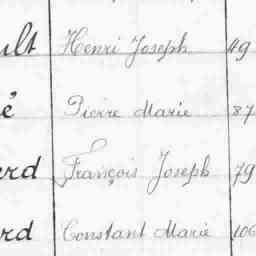 ult Henri Joseph 49
é Pierre Marie 87
erd François Joseph 79
rd Constant Marie 106